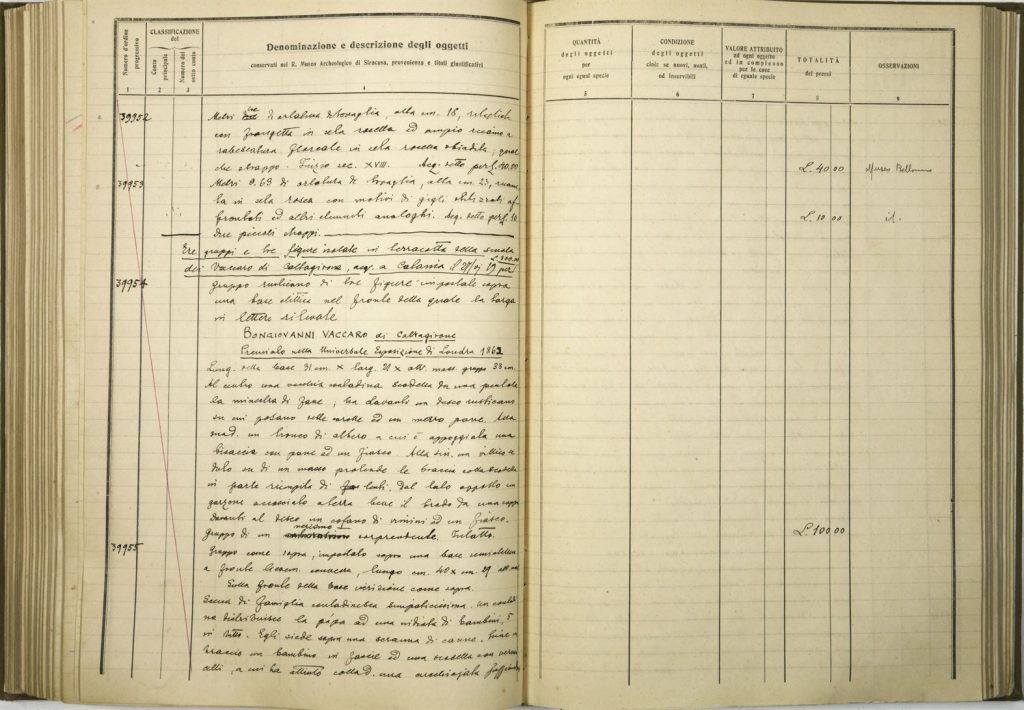 Numero d'ordine progressivo
CLASSIFICAZIONE del
Conto principale
Numero del sotto conto
Denominazione e descrizione degli oggetti
conservati nel R. Museo Archeologico di Siracusa, provenienza e titoli giustificativi
1 2 3 4
39952 Metri tre di orlatura di tovaglia, alta cm. 18,
con frangetta in seta rossetta ed ampio ricamo a
rabescatura floreale in seta rossetta sbiadita, qual
che strappo. Inizio sec. XVIII. Acq. detto per £. 40.00
39953 Metri 0.63 di orlatura di tovaglia, alta cm. 23, ricama
ta in seta rossa con motivi di gigli stilizzati af
frontati ed altri elementi analoghi. Acq. detto per £. 10
due piccoli strappi.
Tre gruppi e tre figure isolate in terracotta della scuola
dei Vaccaro di Caltagirone, acq. a Catania per
£. 300.00
39954 Gruppo rusticano di tre figure impostate sopra
una base elittica nel fronte della quale la targa
in lettere rilevate
BONGIOVANNI VACCARO di Caltagirone
Premiato nella Universale Esposizione di Londra 1862
Lung. della base 31 cm. x larg. 21 x alt. mass. gruppo 33 cm.
Al centro una vecchia contadina scodella da una pentola
la minestra di fave, ha davanti un desco rusticano
su cui posano sette carote ed un mezzo pane.
un tronco di albero a cui è appoggiata una
bisaccia con pane ed un fiasco. Alla sin. un villico se
duto su di un masso protende le braccia colla scodella
in parte riempita di lenti. Dal lato opposto un
garzone accosciato a terra beve il brodo da una
Davanti al desco un cofano di vimini ed un fiasco.
Gruppo di un verismo sorprendente. Intatto.
39955 Gruppo come sopra, impostato sopra una base semielittica
a fronte convessa, lungo cm. 40 x cm. 29
Sulla fronte della base iscrizione come sopra.
Scena di famiglia contadinesca simpaticissima. Un contadi
no distribuisce la papa ad una nidiata di bambini, 5
in tutto. Egli siede sopra una scranna di canne, tiene in
braccio un bambino in fascie ed una scodella con
celli, a cui ha attinto colla d. una
QUANTITÀ
degli oggetti
per
ogni egual specie
5
CONDIZIONE
degli oggetti
cioè se nuovi, usati,
od inservibili
6
VALORE ATTRIBUITO
ad ogni oggetto
ed in complesso
per le cose
di eguale specie
7
TOTALITÀ
dei prezzi
8
OSSERVAZIONI
9
£. 40 00 Museo Bellomo
£. 10 00 id.
£. 100 00